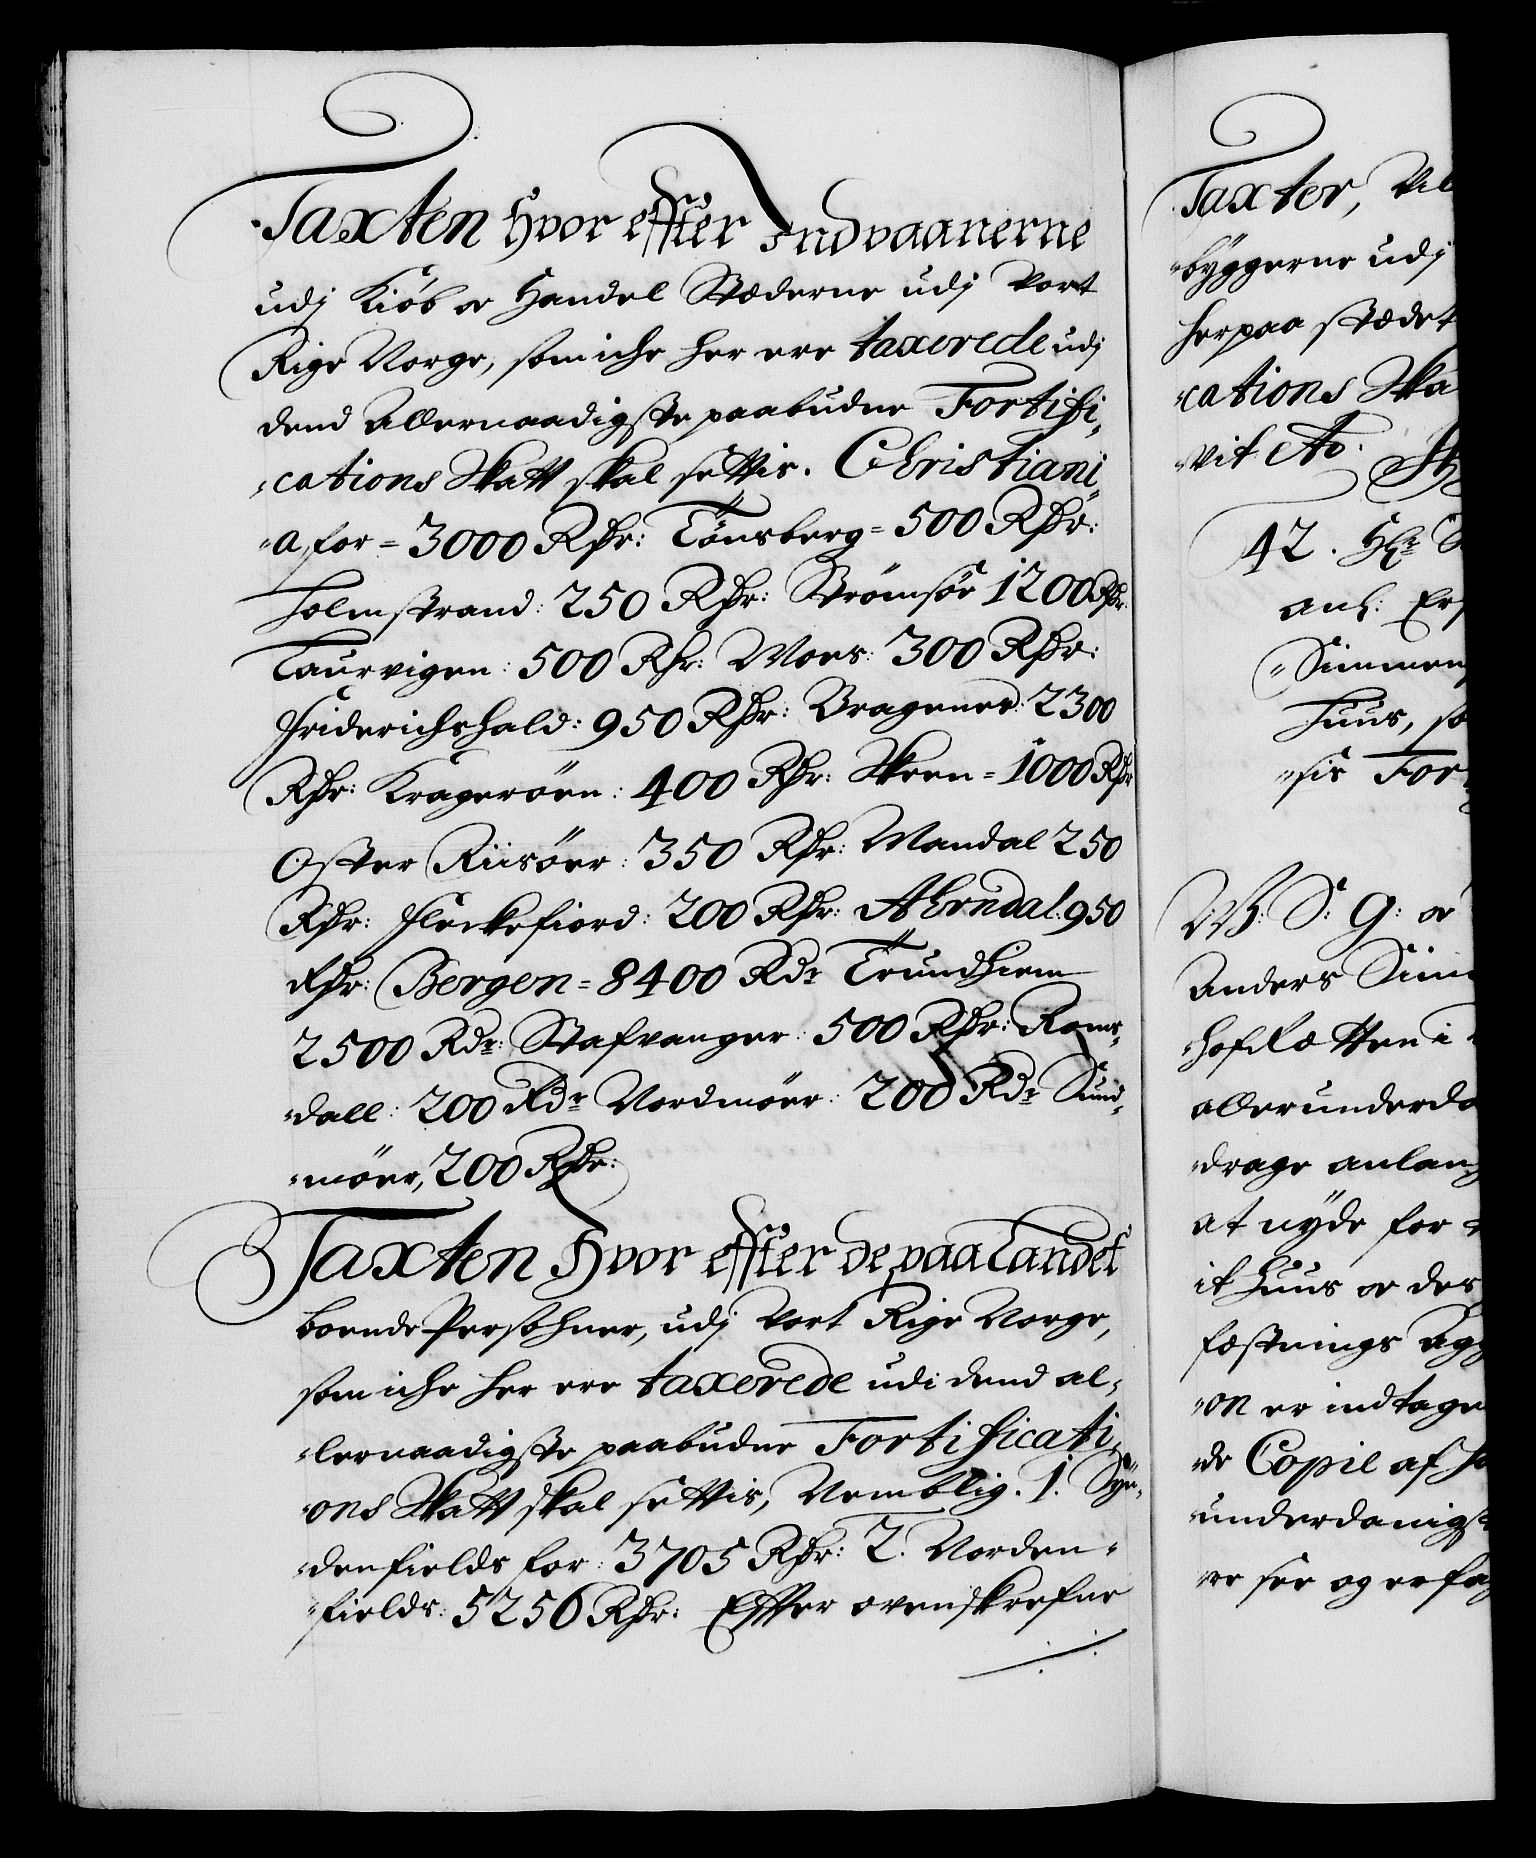 Taxten Hvor effter Indvaanerne
udj Kiöb oc Handel Stæderne udj Vort
Rige Norge, som iche her ere taxerede udj
dend Allernaadigste paabudne Fortifi-
cations Skatt skal settis. Christiani-
a for = 3000 Rdr: Tönsberg = 500 Rdr:
Holmstrand: 250 Rdr: Strömsöe 1200 Rdr:
Laurvigen: 500 Rdr: Moes: 300 Rdr:
Friderichshald: 950 Rdr: Bragenes: 2300
Rdr: Krageröen: 400 Rdr: Skeen = 1000 Rdr
Oster Riisöer: 350 Rdr: Mandal 250
Rdr: Fleckefiord: 200 Rdr: AErndal: 950
Rdr: Bergen = 8400 Rdr Trundhiem
2500 Rdr: Stafvanger: 500 Rdr: Roms-
dall: 200 Rdr Nordmöer: 200 Rdr Sund-
möer, 200 Rdr:
Taxten Hvor effter de paa Landet
boende Persohner, udj Vort Rige Norge,
som iche her ere taxerede udi dend al-
lernaadigste paabudne Fortificati-
ons Skatt skal settis, Nemblig. 1. Syn-
denfields for: 3705 Rdr: 2. Norden-
fields: 5256 Rdr: Effter ovenskrefne
Taxter,
byggerne udj
herpaa stædet
cations Ska
vit Ao.
42. Hr
anl:
Simmen
Huus, so
sis For
V: S: G: oc
Anders Sim
hofRætten i
allerunderda
drage anlan
at nyde for
it Huus oc des
fæstnings
on er indtage
de Copie af
underdanigst
re see og erfa